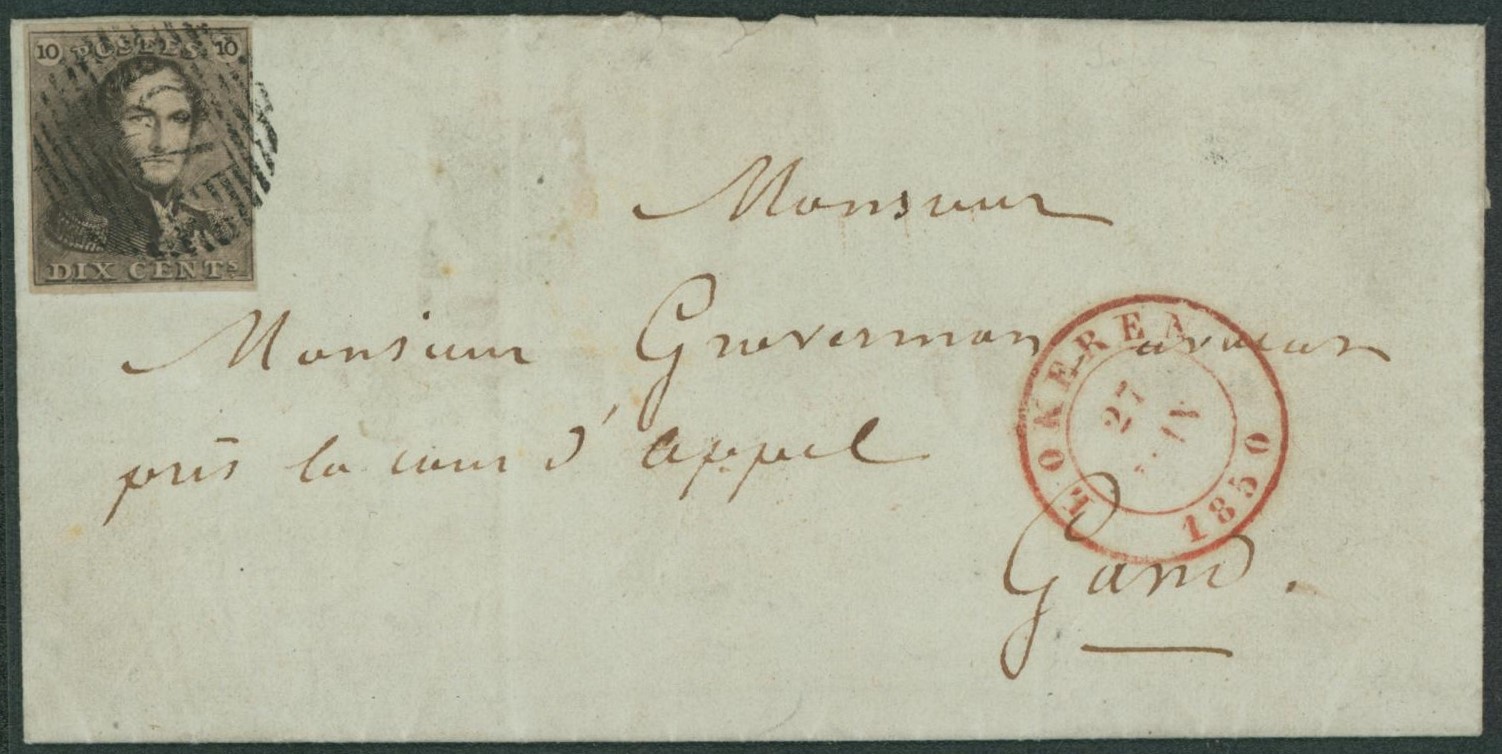 10 POSTES 10
DIX CENTS
Monsieur
Monsieur Groverman avocat
près la cour d'appel
Gand.
LOKEREN
27
1850